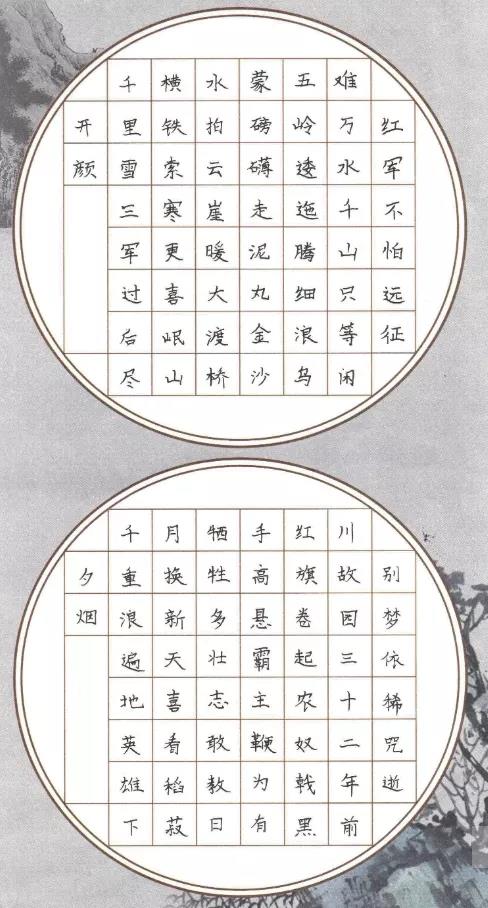 红军不怕远征
难万水千山只等闲
五岭逶迤腾细浪乌
蒙磅礴走泥丸金沙
水拍云崖暖大渡桥
横铁索寒更喜岷山
千里雪三军过后尽
开颜
别梦依稀咒逝
川故园三十二年前
红旗卷起农奴戟黑
手高悬霸主鞭为有
牺牲多壮志敢教日
月换新天喜看稻菽
千重浪遍地英雄下
夕烟